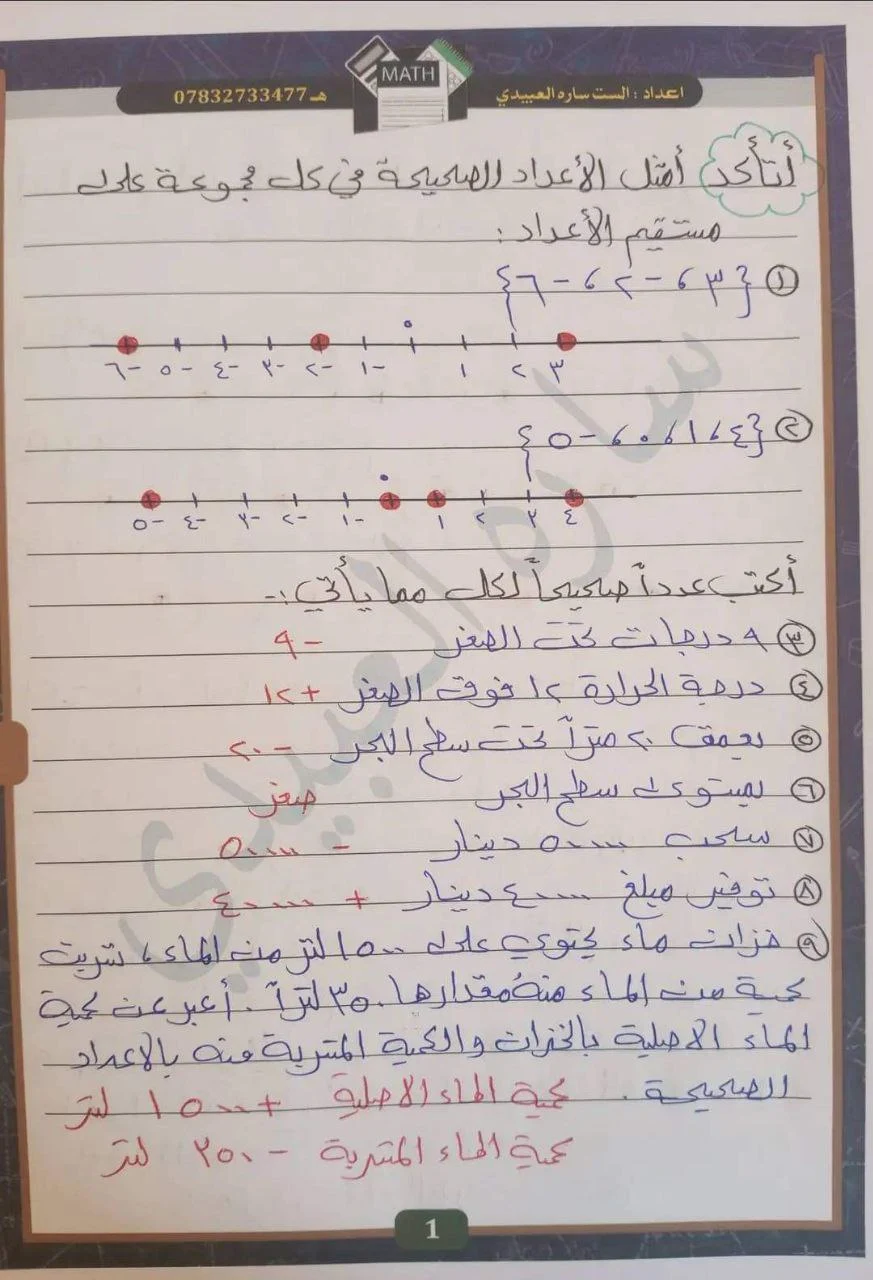 MATH
اعداد : الست ساره العبيدي
هـ 07832733477
أتأكد أمثل الأعداد الصحيحة في كل مجموعة على
مستقيم الأعداد :
① {٣ ، -٢ ، -٦}
-٦ -٥ -٤ -٣ -٢ -١ ٠ ١ ٢ ٣
② {٤ ، ١ ، ٠ ، -٥}
-٥ -٤ -٣ -٢ -١ ٠ ١ ٢ ٣ ٤
أكتب عدداً صحيحاً لكل مما يأتي :-
③ ٩ درجات تحت الصفر -٩
④ درجة الحرارة ١٢ فوق الصفر +١٢
⑤ بعمق ٢٠ متراً تحت سطح البحر -٢٠
⑥ بمستوى سطح البحر صفر
⑦ سحب ٥٠٠٠٠ دينار -٥٠٠٠٠
⑧ توفير مبلغ ٤٠٠٠٠ دينار +٤٠٠٠٠
⑨ خزان ماء يحتوي على ١٥٠٠ لتر من الماء ، تسربت
كمية من الماء منه مقدارها ٣٥٠ لتراً . أعبر عن كمية
الماء الاصلية بالخزان والكمية المتسربة منه بالاعداد
الصحيحة . كمية الماء الاصلية +١٥٠٠ لتر
كمية الماء المتسربة -٣٥٠ لتر
1
ساره العبيدي